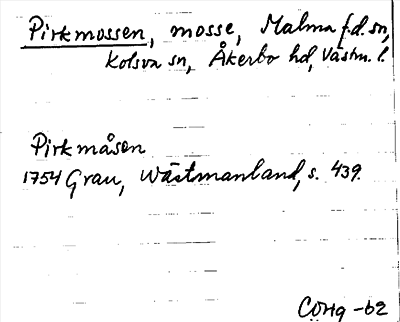 Pirkmossen, mosse, Malma f.d. sn,
Kolsva sn, Åkerbo hd, Västm. l.
Pirkmåsen
1754 Grau, Wästmanland, s. 439.
COHg -62